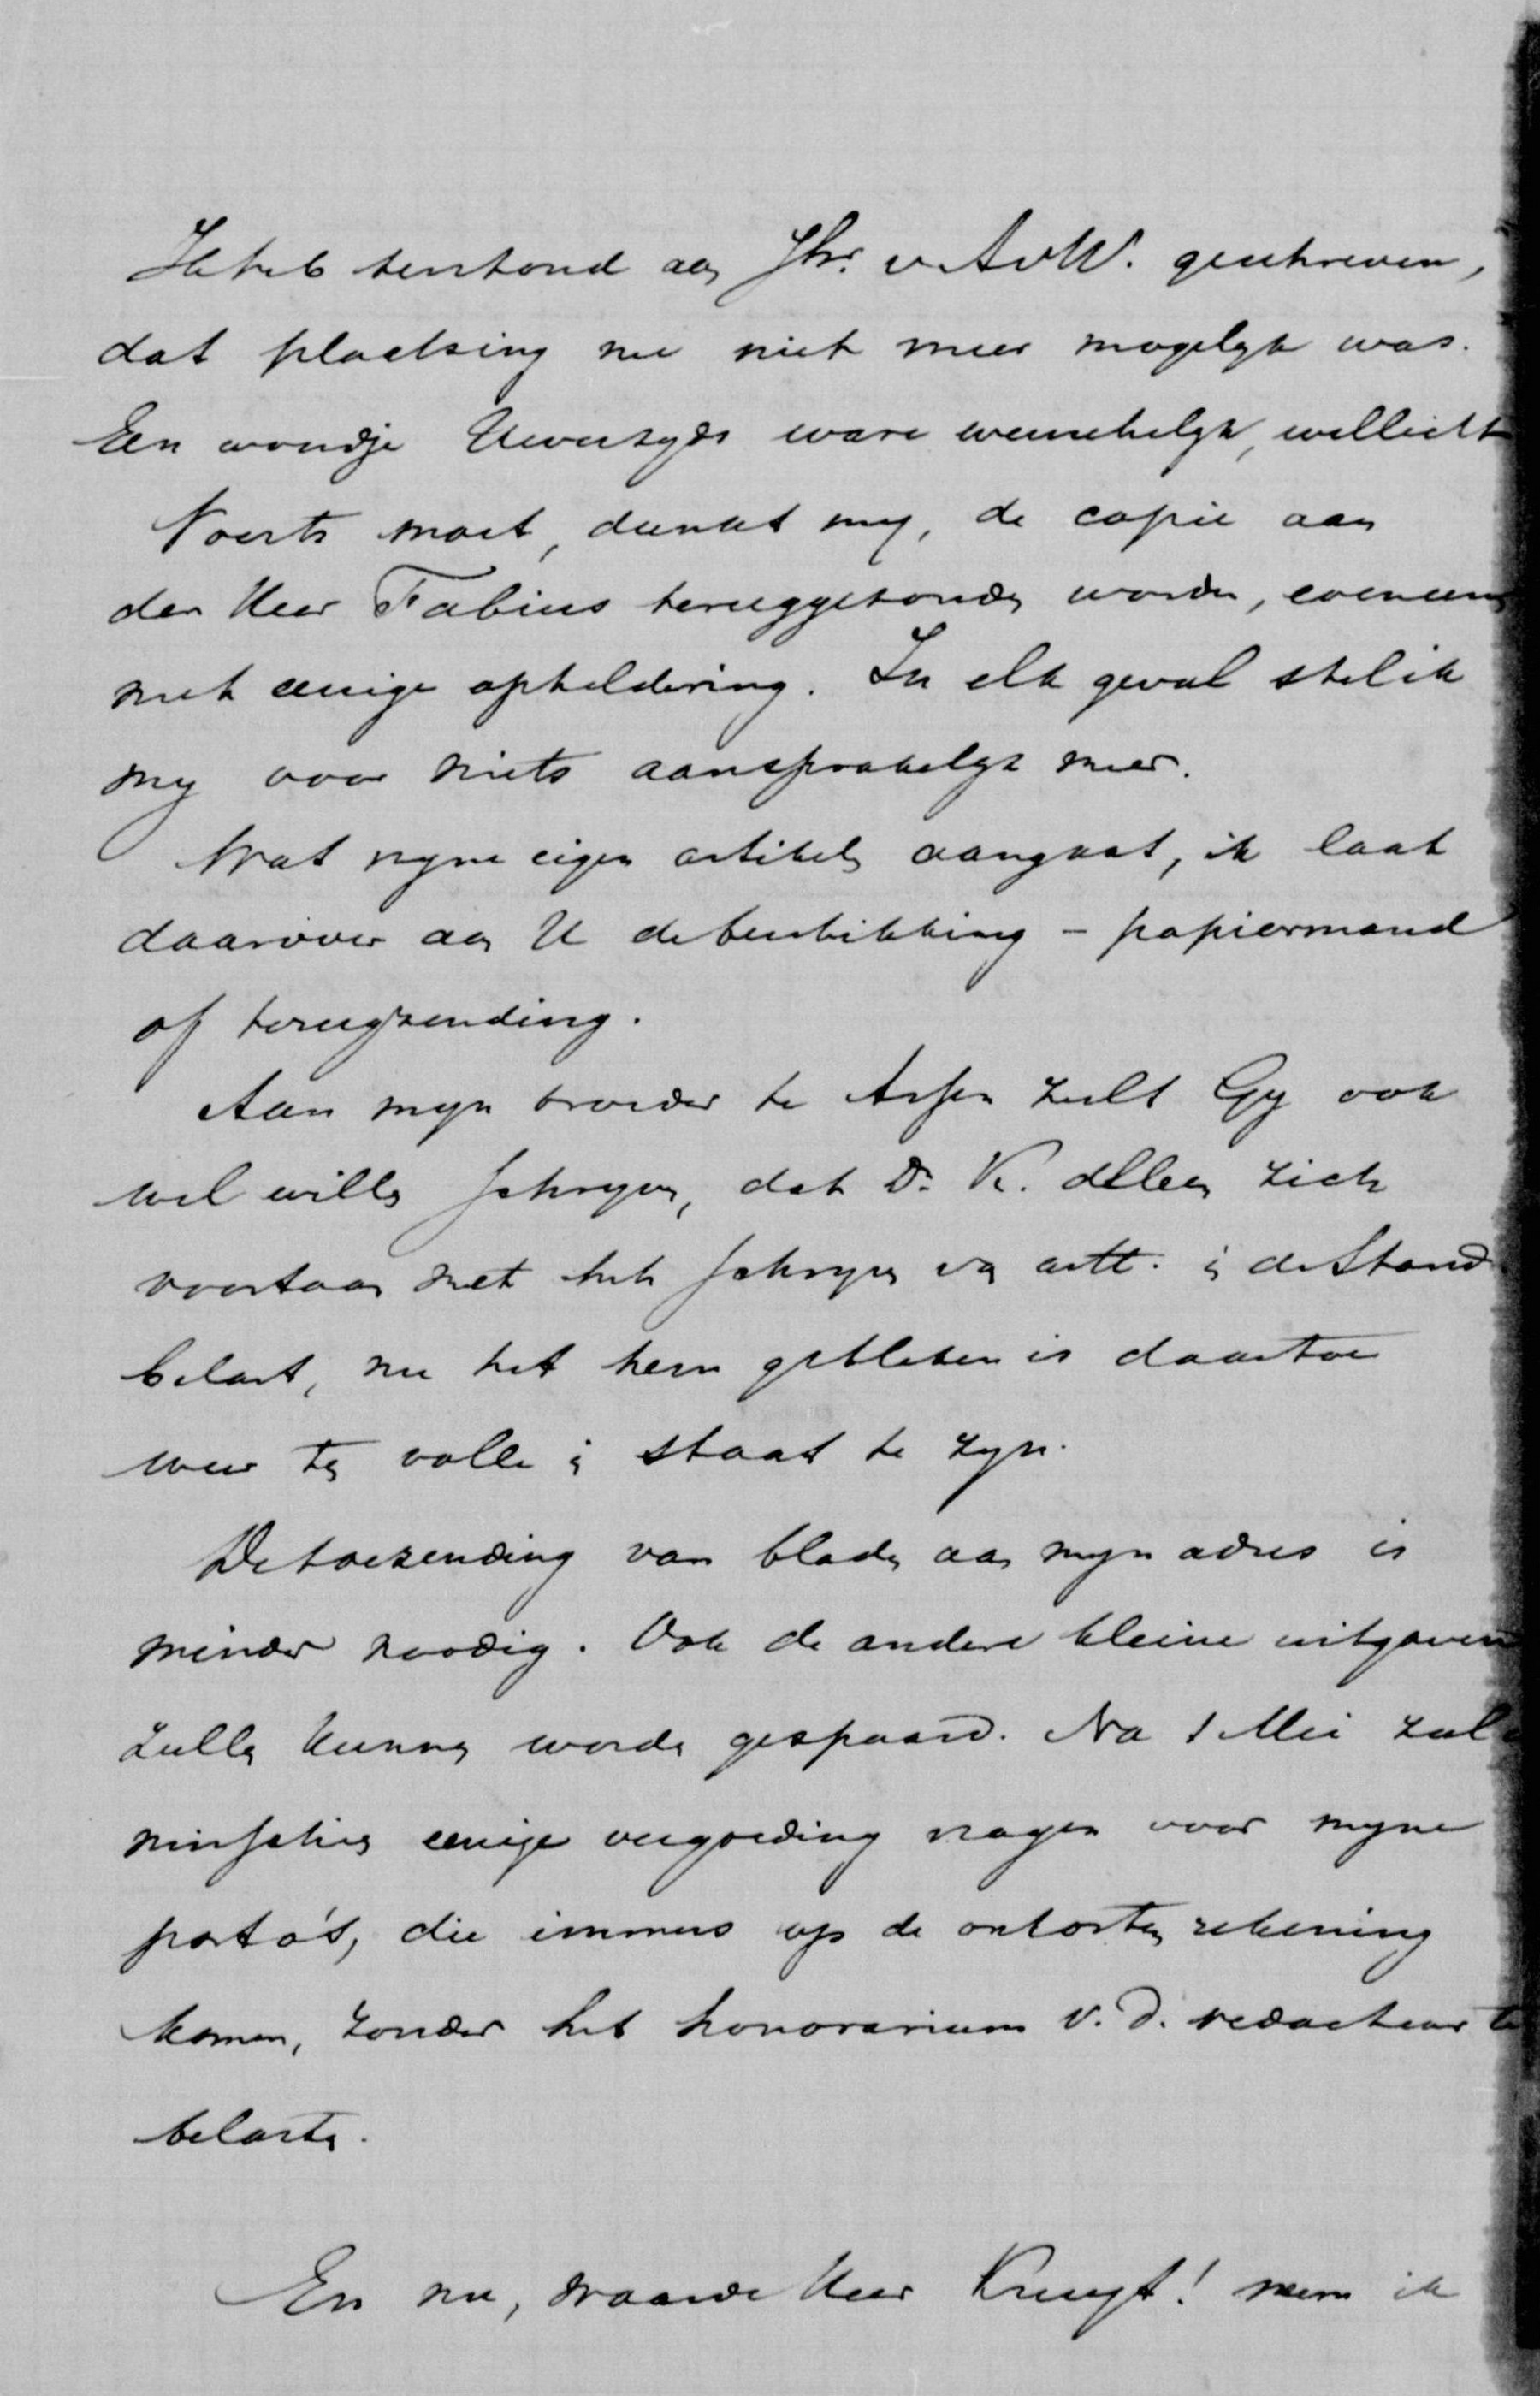 Ik heb terstond aan Jhr. v. A v W. geschreven,
dat plaatsing nu niet meer mogelyk was.
Een woordje Uwerzyds ware wenschelyk, wellicht
Voorts moet, dunkt my, de copie aan
den Heer Fabius teruggezonden worden, eveneens
met eenige opheldering. In elk geval stel ik
my voor niets aansprakelyk meer.
Wat myne eigen artikels aangaat, ik laat
daarover aan U de beschikking - papiermand
of terugzending.
Aan myn broeder te Assen zult Gy ook
wel willen schryven, dat Dr. K. alleen zich
voortaan met het schryven van artt. in de Stand
belast, nu het hem gebleken is daartoe
weer ten volle in staat te zyn.
De toezending van bladen aan myn adres is
minder noodig. Ook de andere kleine uitgaven
zullen kunnen worden gespaard. Na 1 Mei zal
misschien eenige vergoeding vragen voor myne
porto's, die immers op de onkosten rekening
komen, zonder het honorarium v. d. redacteur te
belasten.
En nu, waarde Heer Kruyt! neem ik